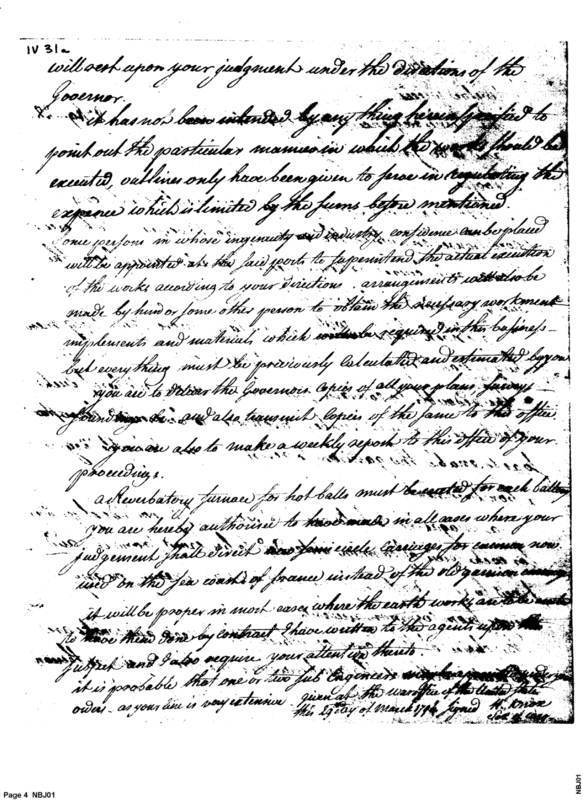 IV 31a
will rest upon your judgment under the directions of the
Governor.
it has not been intended by any thing herein specified to
point out the particular manner in which the works should be
executed, outlines only have been given to serve in regulating the
expence which is limited by the sums before mentioned.
one persons in whose ingenuity and industry confidence can be placed
will be appointed at the said ports to superintend the actual execution
of the works according to your directions. arrangements will also be
made by him or some other person to obtain the necessary workmen
implements and materials which be required in this business
but every thing must be previously calculated and estimated by you
you are to deliver the Governors Copies of all your plans surveys
soundings &c. and also transmit Copies of the same to this office
you are also to make a weekly report to this office of your
proceedings.
a Reverbatory furnace for hot balls must be erected for each battery
you are hereby authorised to have made in all cases where your
judgement shall direct carriages for cannon now
used on the sea coasts of france instead of the old garrison
it will be proper in most cases where the earth works are to be
to have them done by contract I have written to the agents upon this
subject and I also require your attention thereto
it is probable that one or two sub Engineers may be
orders - as your line is very extensive given at the war office of the United States
this 29 day of March 1794 signed H. Knox
Sec of War
Page 4 NBJ01
NBJ01